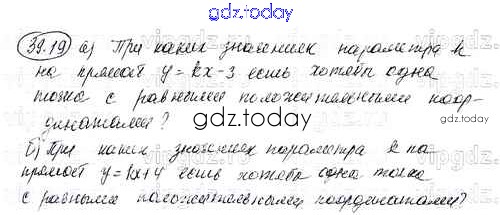 gdz.today
39.19 а) При каких значениях параметра k
на прямой y = kx - 3 есть хотя бы одна
точка с равными положительными коор-
динатами?
gdz.today
б) При каких значениях параметра k на
прямой y = kx + 4 есть хотя бы одна точка
с равными положительными координатами?